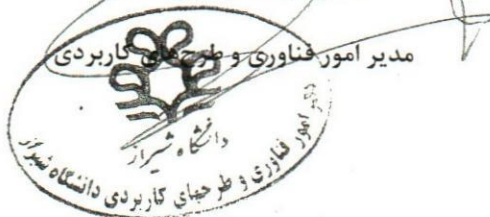 مدیر امور فناوری و طرحهای کاربردی
دانشگاه شیراز
دفتر امور فناوری و طرحهای کاربردی دانشگاه شیراز